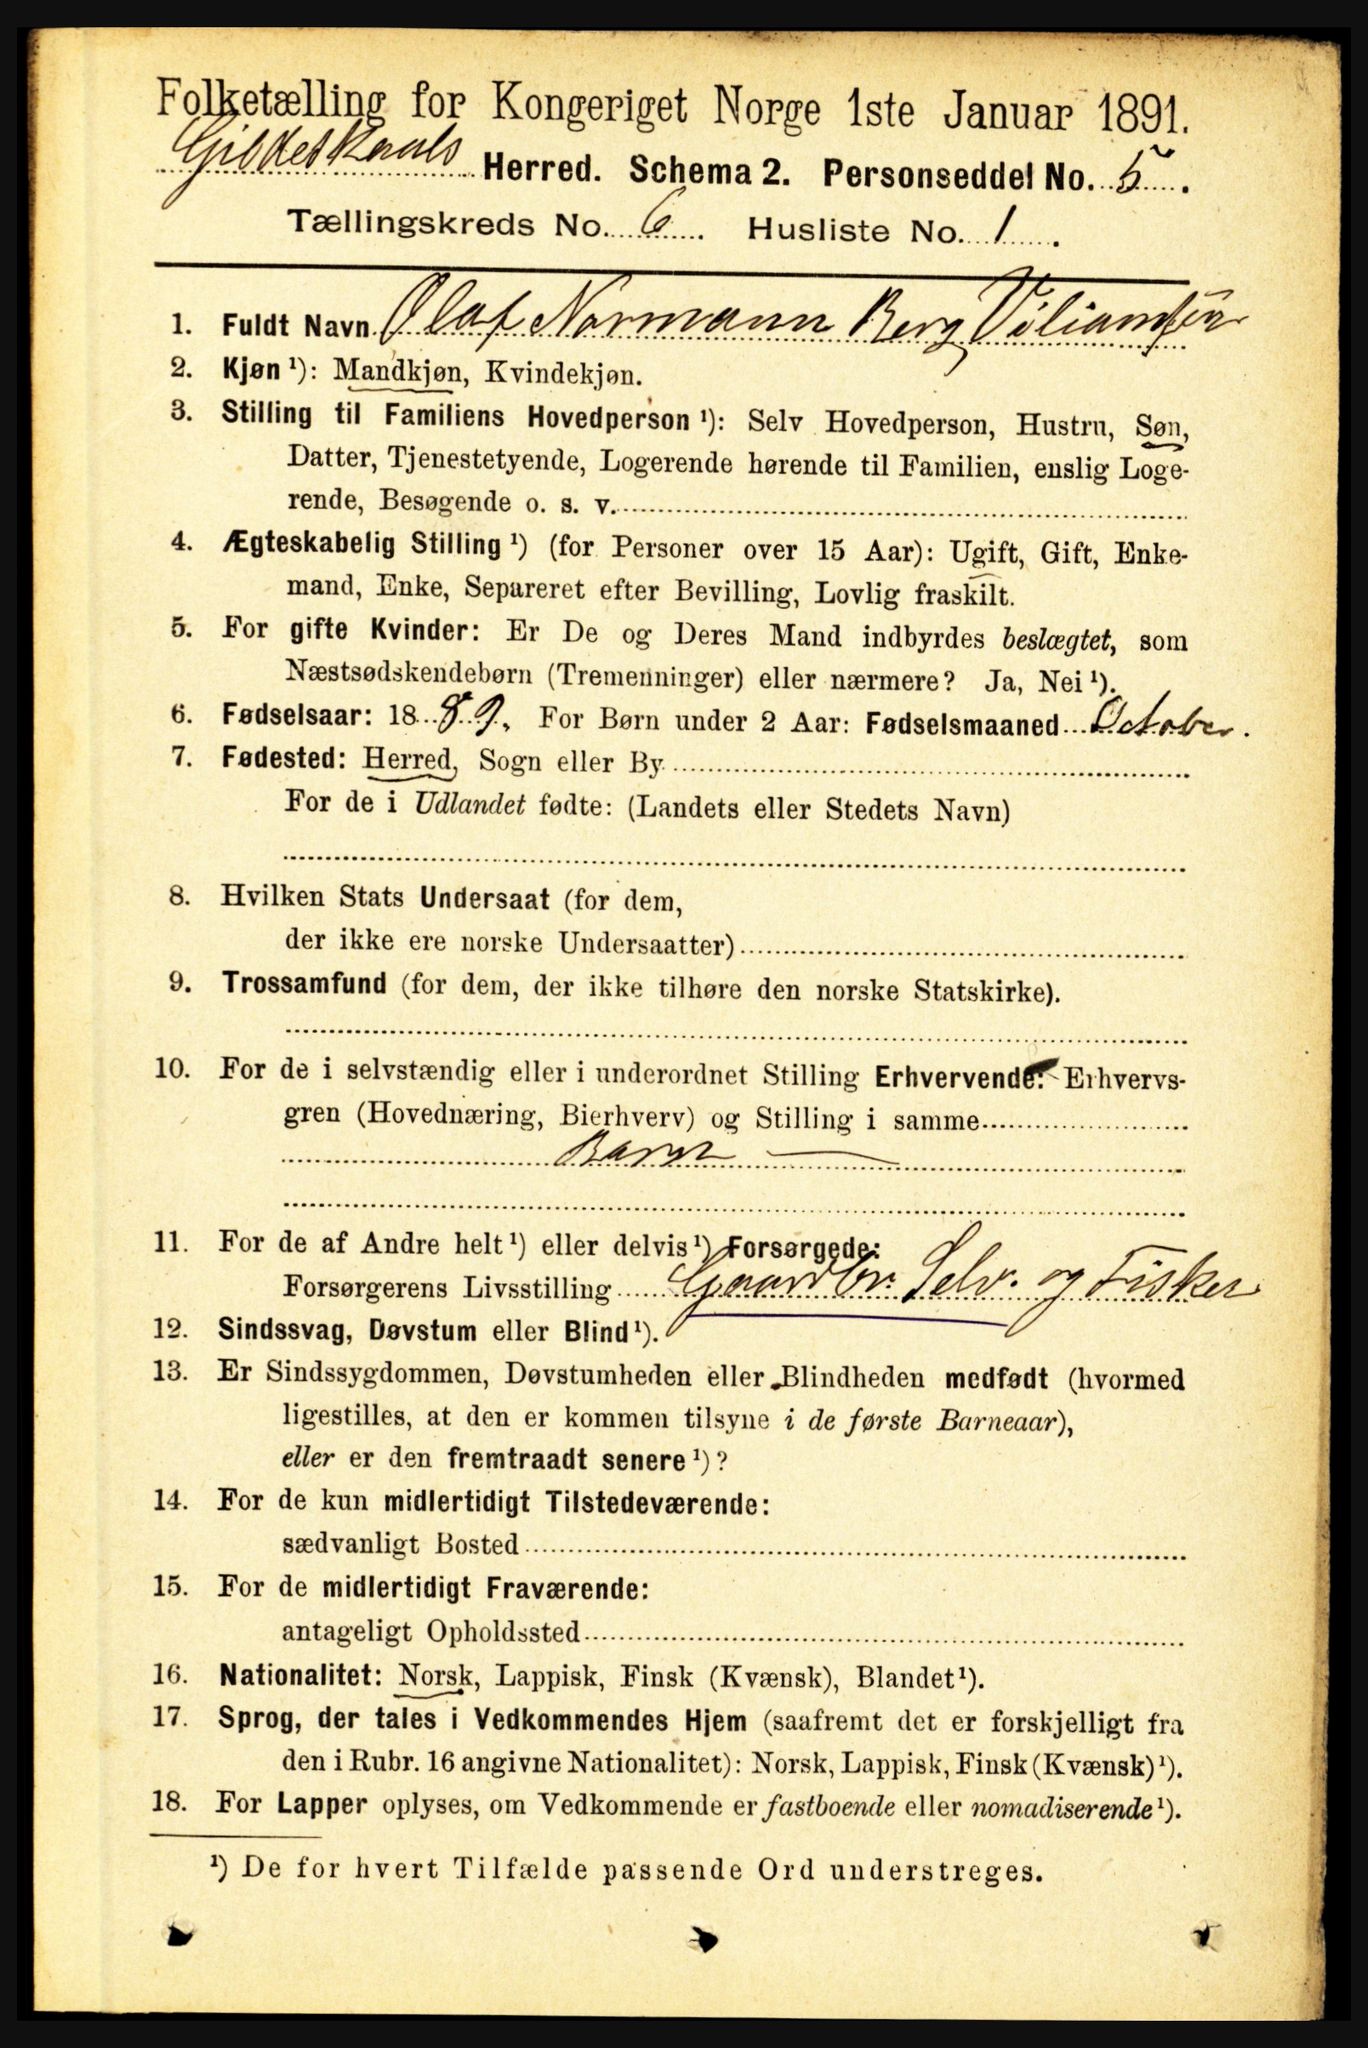 Folketælling for Kongeriget Norge 1ste Januar 1891.
Gildeskaals Herred. Schema 2. Personseddel No. 5.
Tællingskreds No. 6. Husliste No. 1.
1. Fuldt Navn Olaf Normann Berg Viliamsen
2. Kjøn ¹): Mandkjøn, Kvindekjøn.
3. Stilling til Familiens Hovedperson ¹): Selv Hovedperson, Hustru, Søn,
Datter, Tjenestetyende, Logerende hørende til Familien, enslig Loge-
rende, Besøgende o. s. v.
4. Ægteskabelig Stilling ¹) (for Personer over 15 Aar): Ugift, Gift, Enke-
mand, Enke, Separeret efter Bevilling, Lovlig fraskilt.
5. For gifte Kvinder: Er De og Deres Mand indbyrdes beslægtet, som
Næstsødskendebørn (Tremenninger) eller nærmere? Ja, Nei ¹).
6. Fødselsaar: 1889. For Børn under 2 Aar: Fødselsmaaned October.
7. Fødested: Herred, Sogn eller By
For de i Udlandet fødte: (Landets eller Stedets Navn)
8. Hvilken Stats Undersaat (for dem,
der ikke ere norske Undersaatter)
9. Trossamfund (for dem, der ikke tilhøre den norske Statskirke).
10. For de i selvstændig eller i underordnet Stilling Erhvervende: Erhvervs-
gren (Hovednæring, Bierhverv) og Stilling i samme
Barn
11. For de af Andre helt ¹) eller delvis ¹) Forsørgede:
Forsørgerens Livsstilling Gaardbr. Selv. og Fisker
12. Sindssvag, Døvstum eller Blind ¹).
13. Er Sindssygdommen, Døvstumheden eller Blindheden medfødt (hvormed
ligestilles, at den er kommen tilsyne i de første Barneaar),
eller er den fremtraadt senere ¹)?
14. For de kun midlertidigt Tilstedeværende:
sædvanligt Bosted
15. For de midlertidigt Fraværende:
antageligt Opholdssted
16. Nationalitet: Norsk, Lappisk, Finsk (Kvænsk), Blandet ¹).
17. Sprog, der tales i Vedkommendes Hjem (saafremt det er forskjelligt fra
den i Rubr. 16 angivne Nationalitet): Norsk, Lappisk, Finsk (Kvænsk) ¹).
18. For Lapper oplyses, om Vedkommende er fastboende eller nomadiserende ¹).
¹) De for hvert Tilfælde passende Ord understreges.